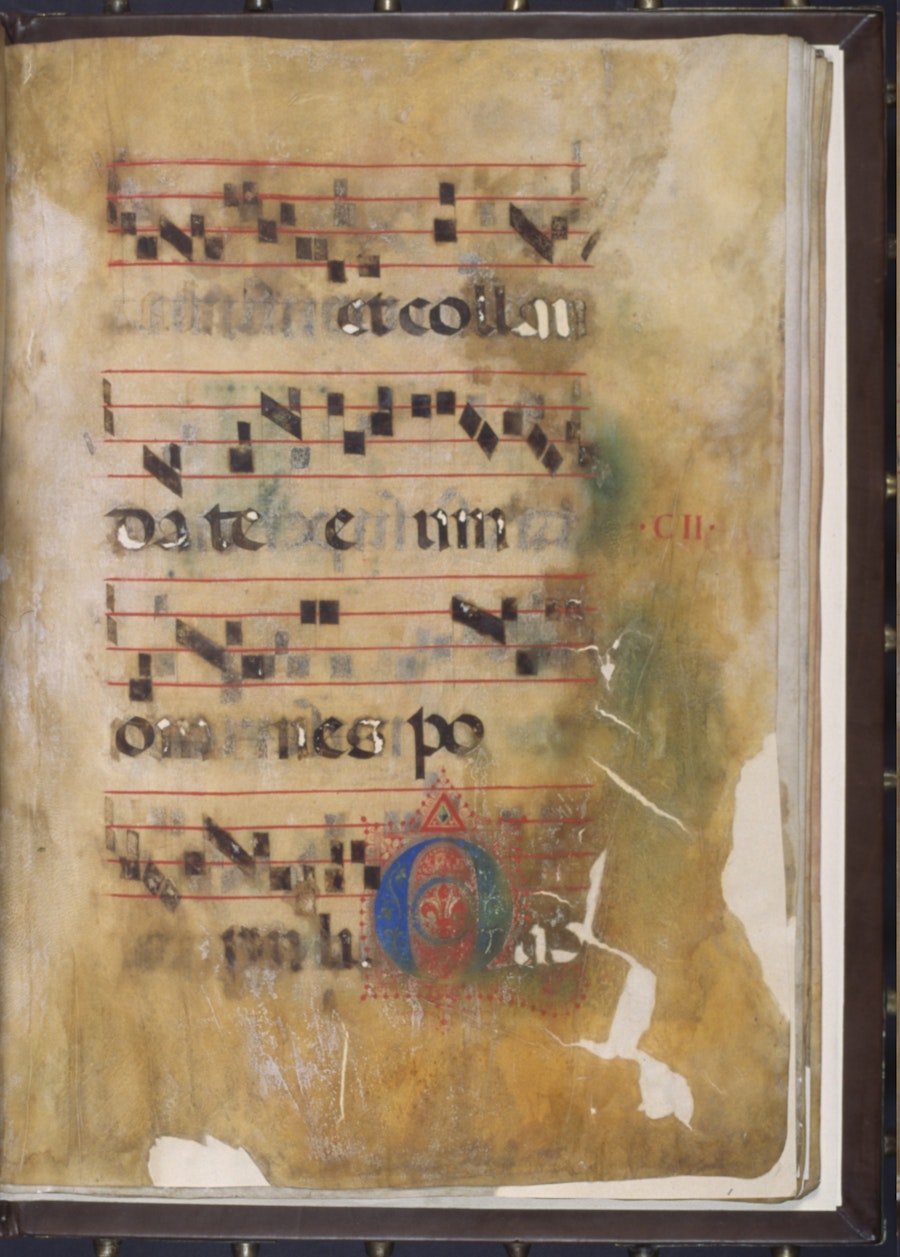 et collau
da te e um
·CII·
om nes po
puli